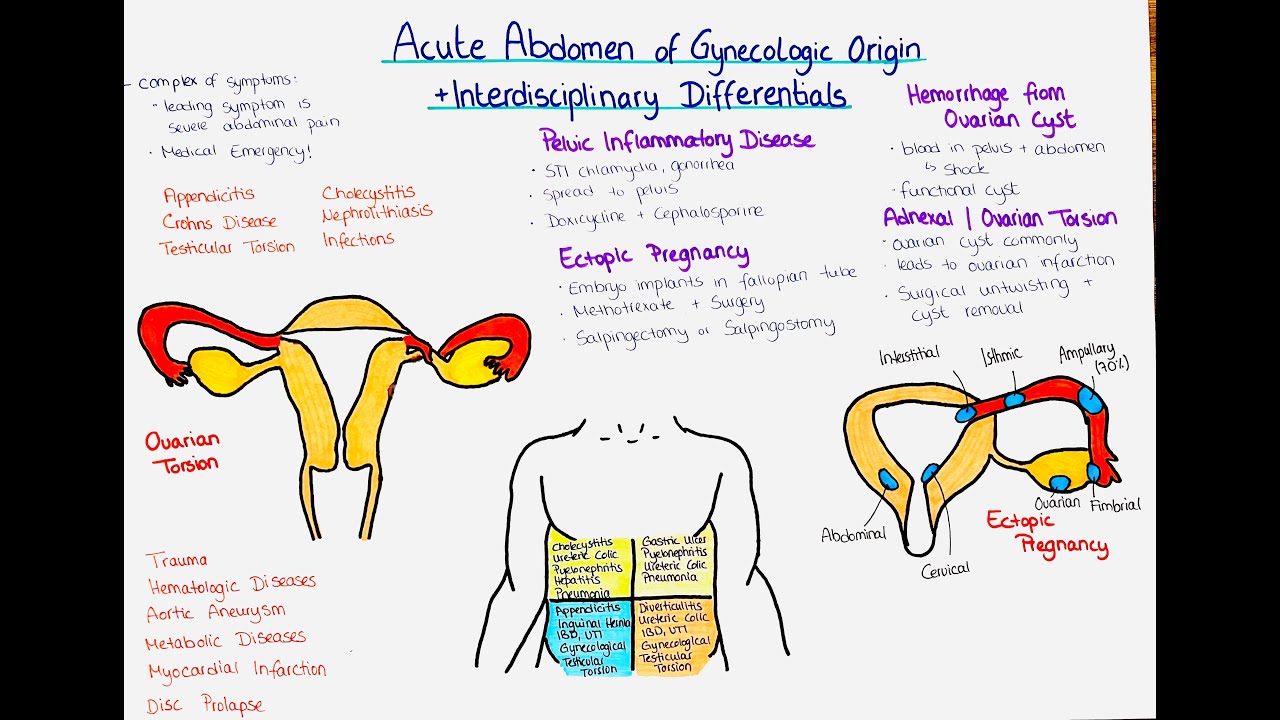 Acute Abdomen of Gynecologic Origin
+Interdisciplinary Differentials
- complex of symptoms:
" leading symptom is
severe abdominal pain
· Medical Emergency!
Appendicitis
Crohns Disease
Testicular Torsion
Cholecystitis
Nephrolithiasis
Infections
Pelvic Inflammatory Disease
· STI chlamydia, gonorrhea
· Spread to pelvis
· Doxicycline + Cephalosporine
Ectopic Pregnancy
· Embryo implants in fallopian tube
· Methotrexate + Surgery
· Salpingectomy or Salpingostomy
Hemorrhage from
Ovarian Cyst
· blood in pelvis + abdomen
↳ Shock
· functional cyst
Adnexal | Ovarian Torsion
· ovarian cyst commonly
· leads to ovarian infarction
· Surgical untwisting +
cyst removal
Ovarian
Torsion
Interstitial
Isthmic
Ampullary
(70%)
Abdominal
Cervical
Ovarian
Fimbrial
Ectopic
Pregnancy
Trauma
Hematologic Diseases
Aortic Aneurysm
Metabolic Diseases
Myocardial Infarction
Disc Prolapse
Cholecystitis
Ureteric Colic
Pyelonephritis
Hepatitis
Pneumonia
Gastric Ulcer
Pyelonephritis
Ureteric Colic
Pneumonia
Appendicitis
Inguinal Hernia
IBD, UTI
Gynecological
Testicular
Torsion
Diverticulitis
Ureteric Colic
IBD, UTI
Gynecological
Testicular
Torsion